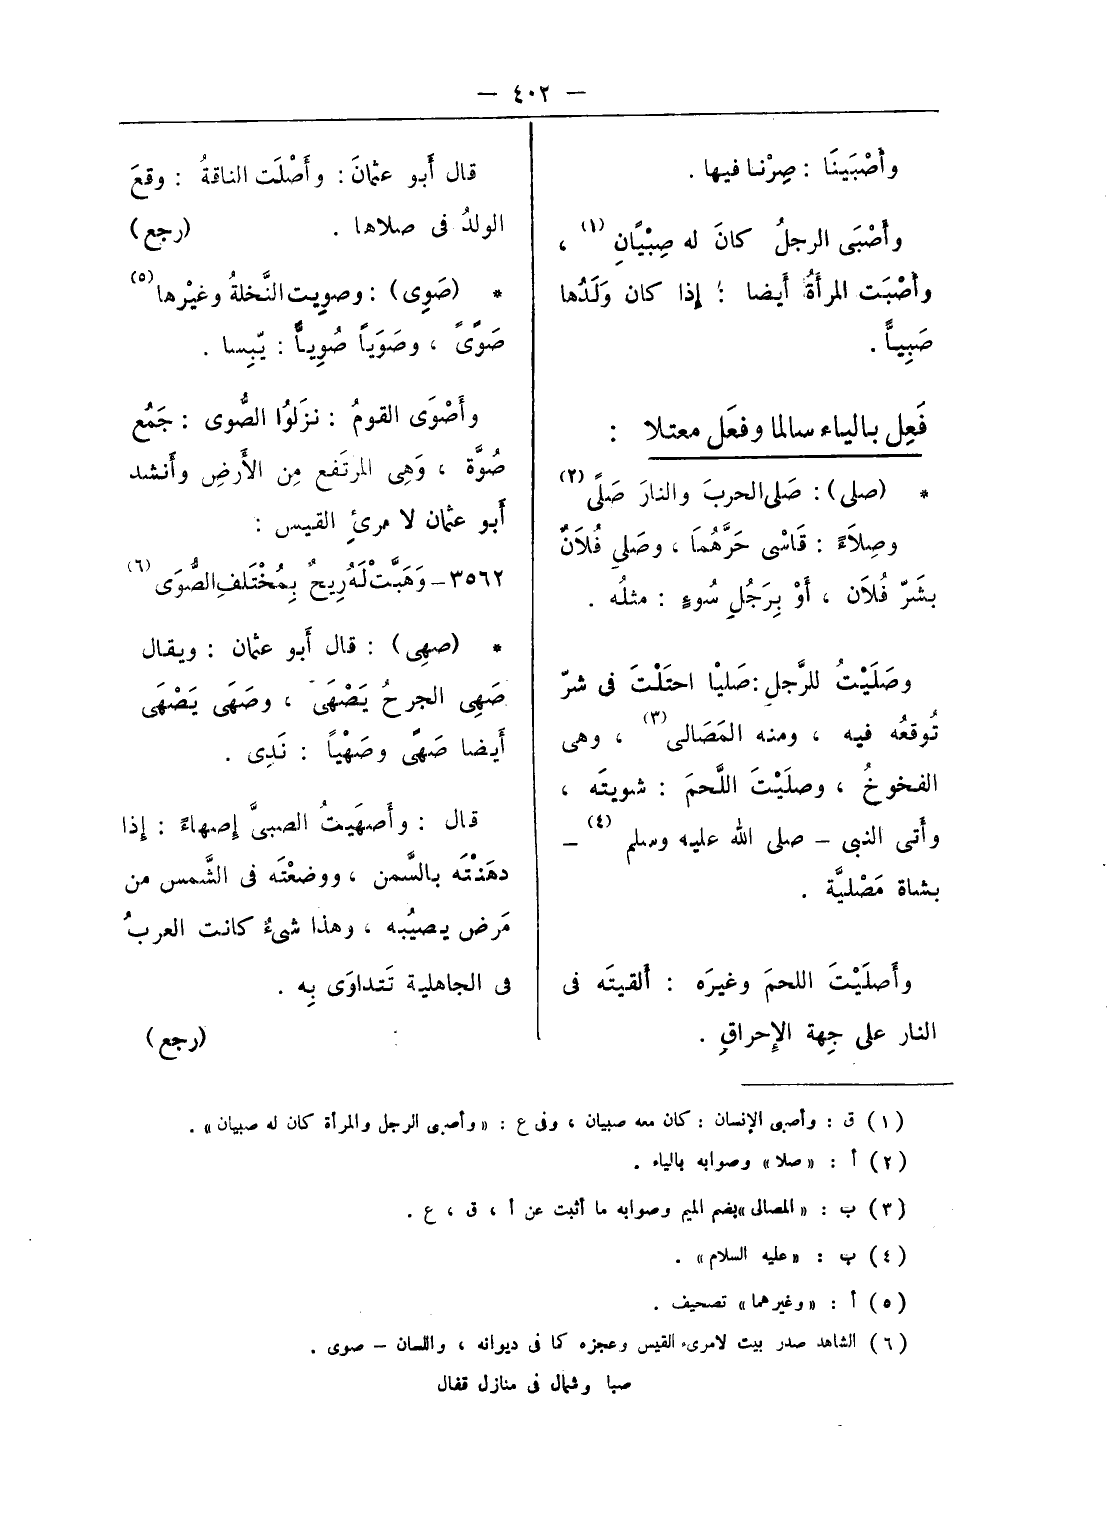 — ٤٠٢ —
وأَصْبَينَا : صِرْنا فيها .
وأَصْبَى الرجلُ كانَ له صِبْيَانِ (١) ،
وأَصْبَت المرأَةُ أَيضا : إِذا كان وَلَدُها
صَبِياًّ .
فَعِل بالياء سالما وفعَل معتلا :
* (صلى) : صَلى الحربَ والنارَ صَلًى (٢)
وصِلاَءً : قَاسْى حَرَّهُمَا ، وصَلِي فُلاَنٌ
بشَرّ فُلاَن ، أَوْ بِرَجُلِ سُوءٍ : مثلُه .
وصَلَيْتُ للرَّجلِ : صَليْا احتَلْتَ فى شرّ
تُوقعُه فيه ، ومنه المَصَالى (٣) ، وهى
الفخوخُ ، وصلَيْتَ اللَّحمَ : شويتَه ،
وأَتى النبى – صلى الله عليه وسلم (٤) –
بشاة مَصْليَّة .
وأَصلَيْتَ اللحمَ وغيرَه : أَلقيتَه فى
النار على جِهة الإِحراقِ .
قال أَبو عثمانَ : وأَصْلَت الناقةُ : وقعَ
الولدُ فى صلاها . (رجع)
* (صَوِى) : وصويِت النَّخلةُ وغيْرها (٥)
صَوًى ، وصَوَياً صُوِياًّ : يَبِسا .
وأَصْوَى القومُ : نزَلوُا الصُّوى : جَمْع
صُوَّة ، وَهِى المرتَفع مِن الأَرضِ وأَنشد
أَبو عثمان لا مرئِ القيس :
٣٥٦٢ – وَهَبَّتْ لَهُ رِيحٌ بِمُخْتَلَفِ الصُّوَى (٦)
* (صهِى) : قال أَبو عثمان : ويقال
صَهِى الجرحُ يَصْهَى ، وصَهَى يَصْهَى
أَيضا صَهًى وصَهْياً : نَدِى .
قال : وأَصهَيتُ الصبىَّ إِصهاءً : إِذا
دهَنْتَه بالسَّمن ، ووضعْتَه فى الشَّمس من
مَرض يصيُبه ، وهذا شىءٌ كانت العربُ
فى الجاهلية تَتداوَى بِه .
(رجع)
(١) ق : وأصبى الإنسان : كان معه صبيان ، وفى ع : «وأصبى الرجل والمرأة كان له صبيان» .
(٢) أ : «صلا» وصوابه بالياء .
(٣) ب : «المصالى» بضم الميم وصوابه ما أثبت عن أ ، ق ، ع .
(٤) ب : «عليه السلام» .
(٥) أ : «وغيرهما» تصحيف .
(٦) الشاهد صدر بيت لامرىء القيس وعجزه كما فى ديوانه ، واللسان – صوى .
صبا وشمال فى منازل قفال